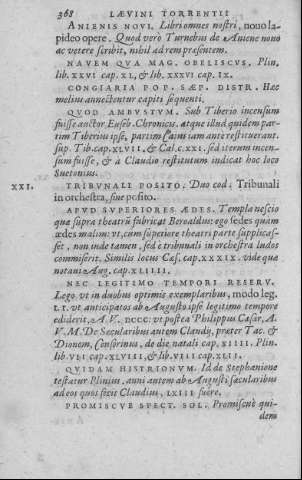 368 LÆVINI TORRENTII
ANIENIS NOVI. Libri omnes nostri, nouo la-
pideo opere. Quod verò Turnebus de Aniene nouo
ac vetere scribit, nihil ad rem præsentem.
NAVEM QVA MAG. OBELISCVS. Plin.
lib. XXVI cap. XL, & lib. XXXVI cap. IX.
CONGIARIA POP. SÆP. DISTR. Hæc
melius annectentur capiti sequenti.
QVOD AMBVSTVM. Sub Tiberio incensum
fuisse auctor Euseb. Chronicus. atque illud quidem par-
tim Tiberius ipse, partim Caius iam ante restituerant.
sup. Tib. cap. XLVII, & Cal. c. XXI. sed iterum incen-
sum fuisse, & à Claudio restitutum indicat hoc loco
Suetonius.
XXI. TRIBVNALI POSITO. Duo cod: Tribunali
in orchestra, siue posito.
APVD SVPERIORES ÆDES. Templa nescio
quæ supra theatrū fabricat Beroaldus: ego sedes quam
ædes malim: vt, cum superiore theatri parte supplicas-
set, non inde tamen, sed è tribunali in orchestra ludos
commiserit. Similis locus Cæs. cap. XXXIX. vide quæ
notaui Aug. cap. XLIIII.
NEC LEGITIMO TEMPORI RESERV.
Lego, vt in duobus optimis exemplaribus, modo leg.
T. R. vt anticipatos ab Augusto ipse legitimo tempore
ediderit, A. V. DCCC: vt postea Philippus Cæsar, A.
V. M. De Secularibus autem Claudij, præter Tac. &
Dionem, Censorinus, de die natali cap. XIIII. Plin.
lib. VII cap. XLVIII, & lib. VIII cap. XLII.
QVIDAM HISTRIONVM. Id de Stephanione
testatur Plinius. anni autem ab Augusti sæcularibus
ad eos quos fecit Claudius, LXIII fuere.
PROMISCVE SPECT. SOL. Promiscuè qui-
dem